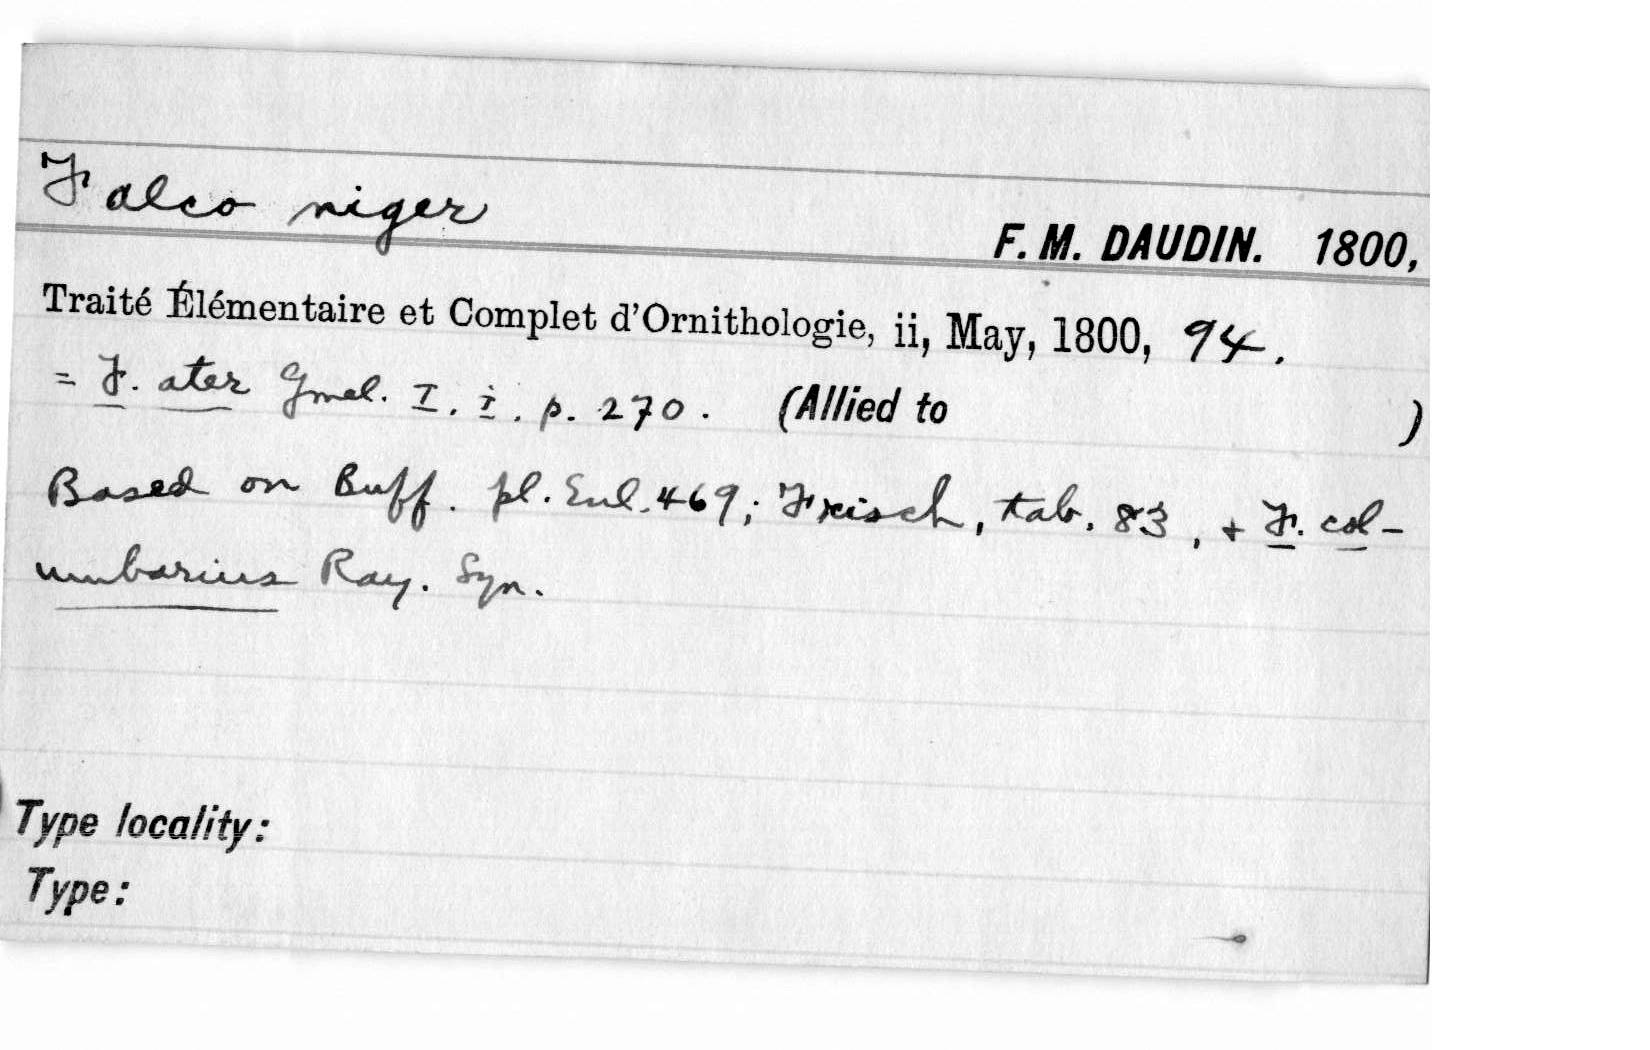 Falco niger
F. M. DAUDIN. 1800,
Traité Élémentaire et Complet d'Ornithologie, ii, May, 1800, 94.
= F. ater Gmel. I. i. p. 270. (Allied to )
Based on Buff. pl. Enl. 469; Frisch, tab. 83, + F. col-
umbarius Ray. Syn.
Type locality:
Type: